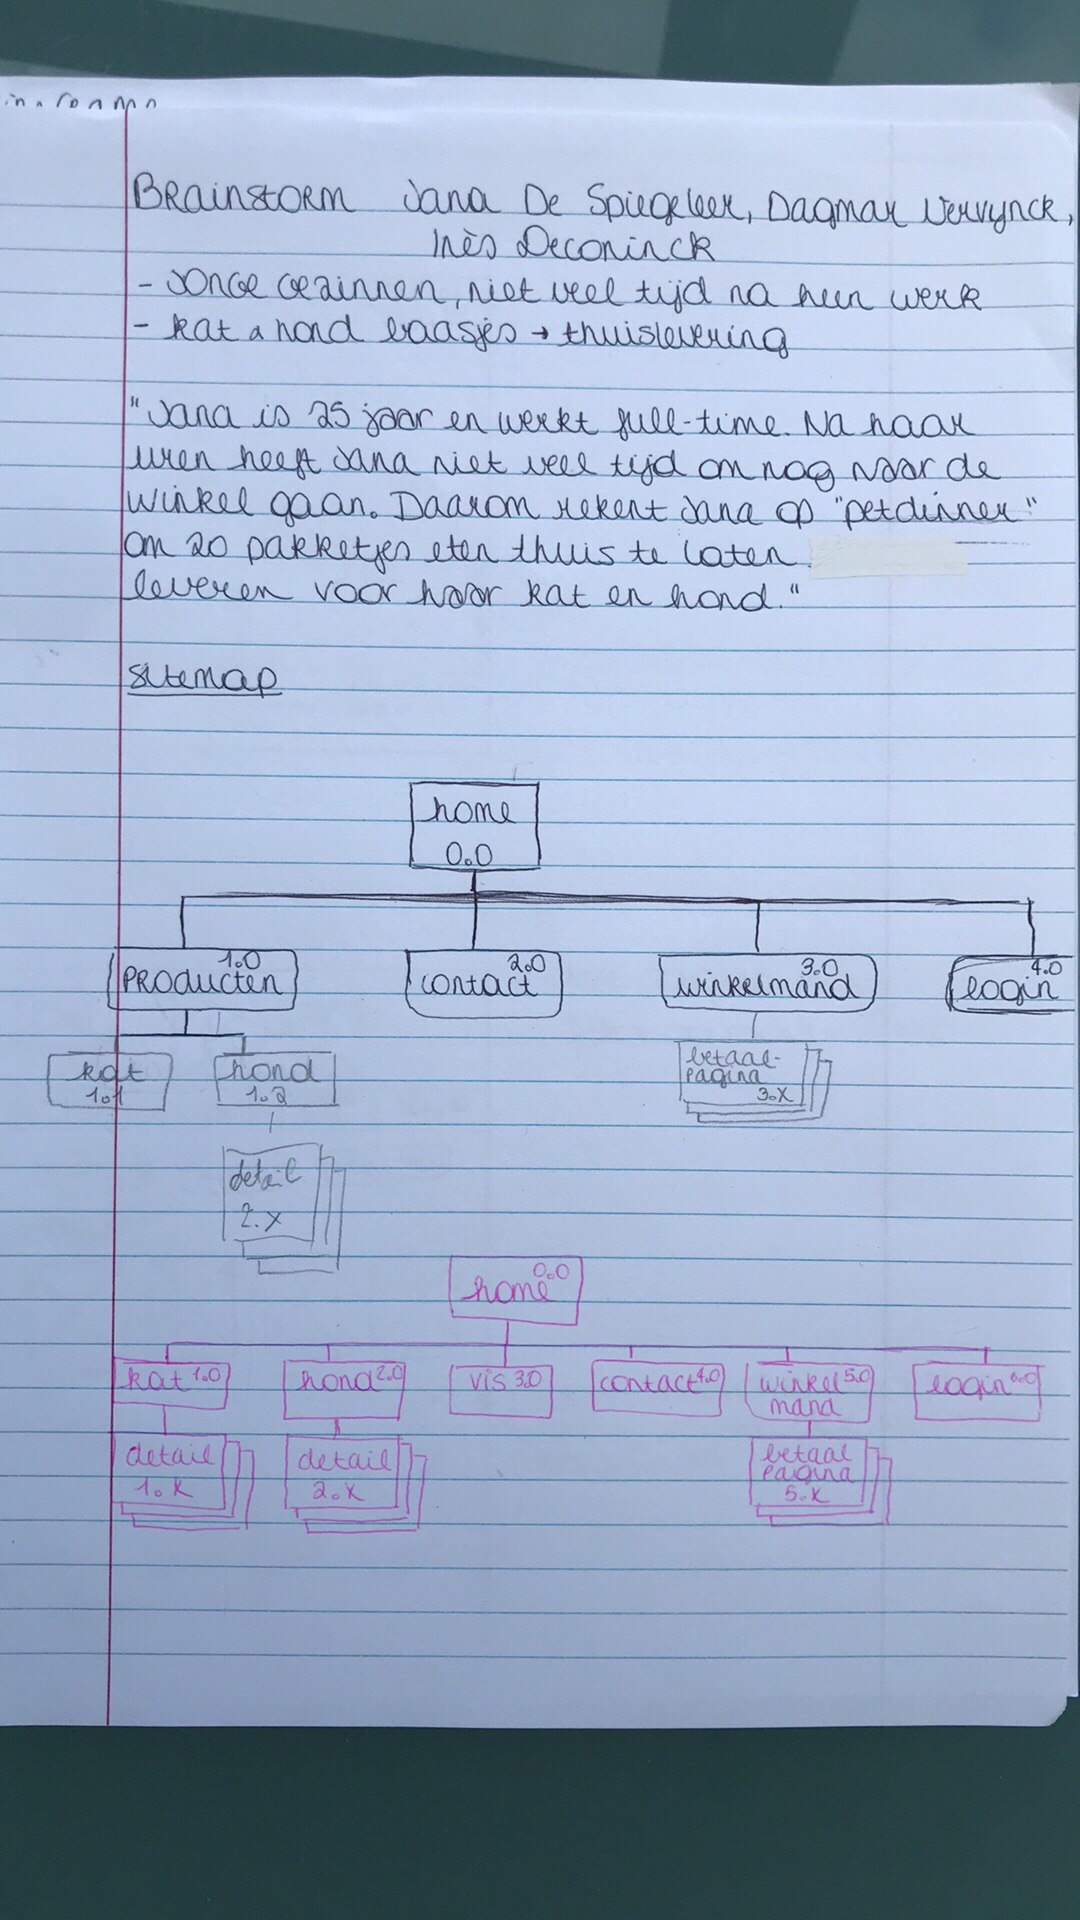 Brainstorm Jana De Spiegeleer, Dagmar Vervynck,
Inès Deconinck
- Jonge gezinnen, niet veel tijd na hun werk
- kat & hond baasjes → thuislevering
"Jana is 25 jaar en werkt full-time. Na haar
uren heeft Jana niet veel tijd om nog naar de
winkel gaan. Daarom rekent Jana op "petdinner"
om 20 pakketjes eten thuis te laten
leveren voor haar kat en hond."
sitemap
home
0.0
1.0 2.0 3.0 4.0
Producten contact winkelmand login
kat hond betaal-
1.1 1.2 pagina
3.x
detail
2.x
0.0
home
kat 1.0 hond 2.0 vis 3.0 contact 4.0 winkel 5.0 login 6.0
mand
detail detail betaal
1.x 2.x pagina
5.x